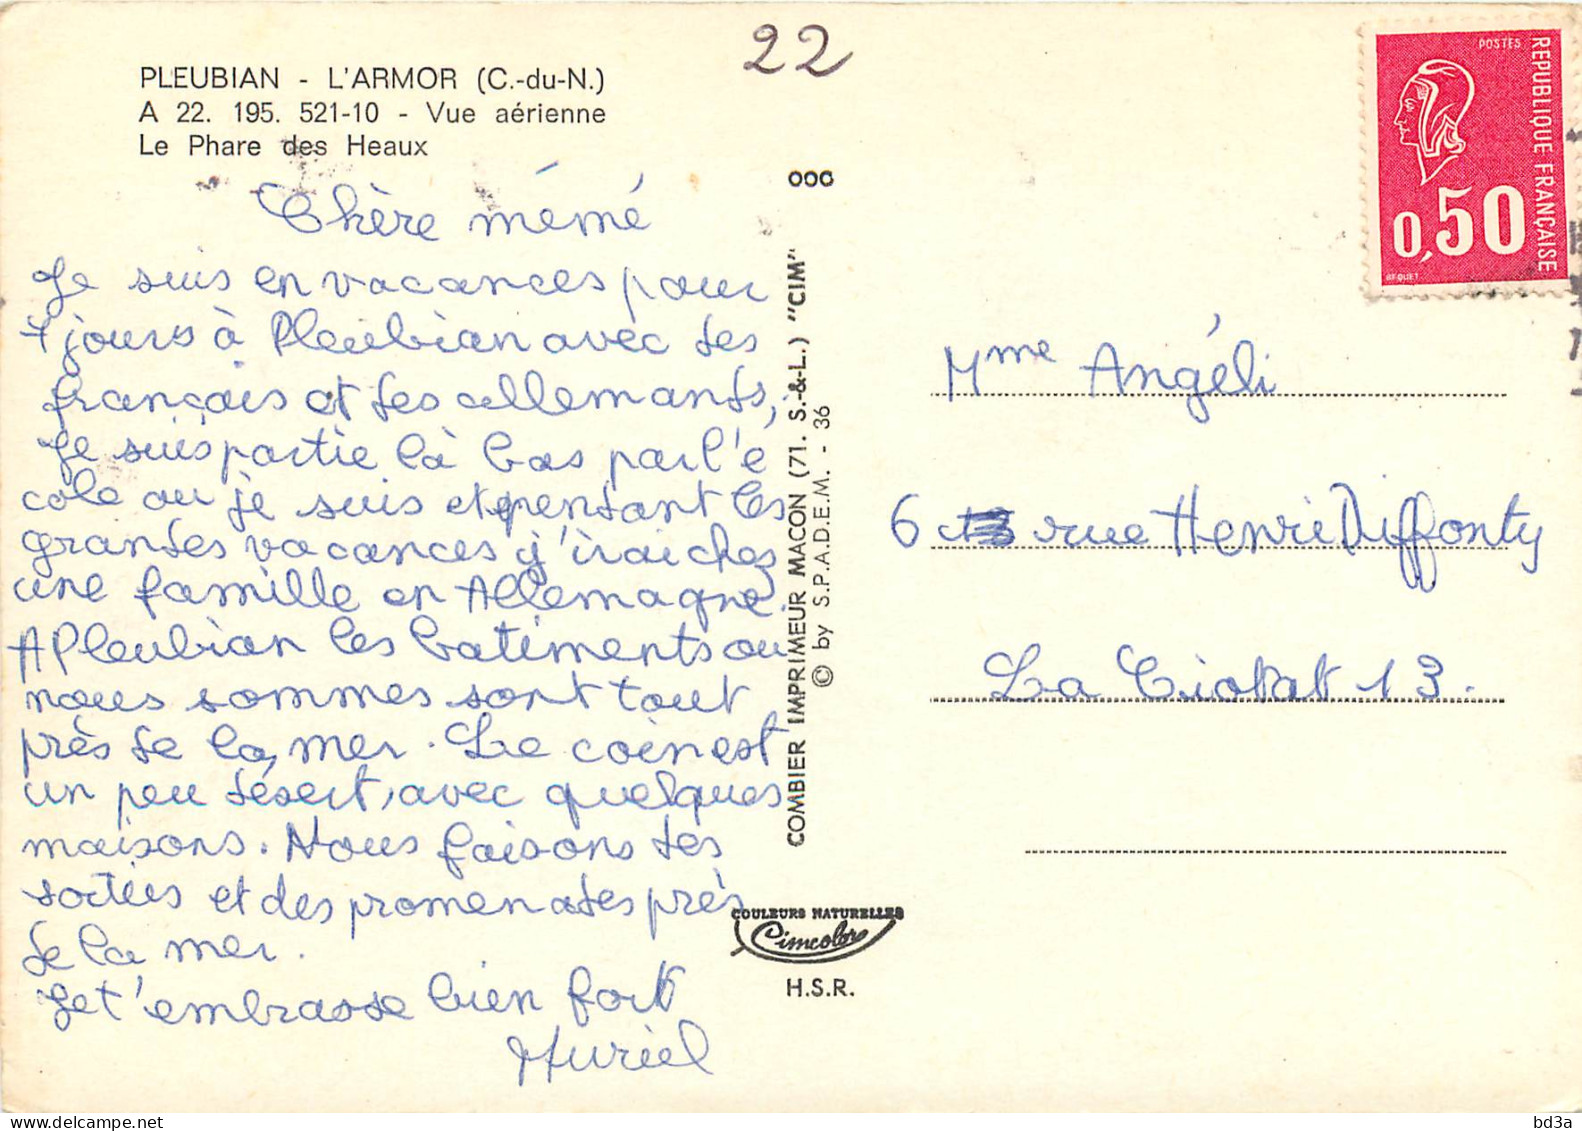 22
PLEUBIAN - L'ARMOR (C.-du-N.)
A 22. 195. 521-10 - Vue aérienne
Le Phare des Heaux
Chère mémé
Je suis en vacances pour
7 jours à Pleubian avec des
français et des allemands,
Je suis partie là bas par l'é
cole ou je suis et pendant les
grandes vacances j'irai chez
une famille en Allemagne.
A Pleubian les batiments ou
nous sommes sont tout
près de la mer. Le coin est
un peu désert, avec quelques
maisons. Nous faisons des
sorties et des promenades près
de la mer.
Je t'embrasse bien fort
Muriel
OOO
COMBIER IMPRIMEUR MACON (71. S.-&-L.) "CIM"
© by S.P.A.D.E.M. - 36
COULEURS NATURELLES
Cimcolor
H.S.R.
POSTES
REPUBLIQUE FRANÇAISE
0,50
BEQUET
Mme Angéli
6 rue Henri Diffonty
La Ciotat 13.
bd3a